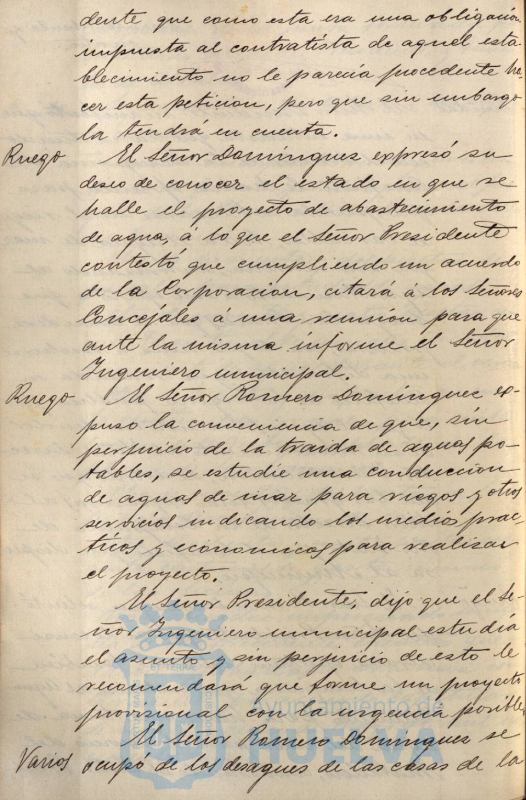 dente que como esta era una obligación
impuesta al contratista de aquel esta
blecimiento no le parecia procedente ha-
cer esta peticion, pero que sin embargo
la tendrá en cuenta.
Ruego El Señor Dominguez expresó su
deseo de conocer el estado en que se
halle el proyecto de abastecimiento
de agua, á lo que el Señor Presidente
contestó que cumpliendo un acuerdo
de la Corporacion, citará á los Señores
Concejales á una reunión para que
ante la misma informe el Señor
Ingeniero municipal.
Ruego El Señor Romero Dominguez ex-
puso la conveniencia de que, sin
perjuicio de la traida de aguas po-
tables, se estudie una conduccion
de aguas de mar para riegos y otros
servicios indicando los medios prac
ticos y economicos para realizar
el proyecto.
El Señor Presidente, dijo que el Se-
ñor Ingeniero municipal estudia
el asunto y sin perjuicio de esto le
recomendará que forme un proyecto
provisional con la urgencia posible
El Señor Romero Dominguez se
Varios ocupó de los desagues de las casas de la
Ayuntamiento de
HUELVA